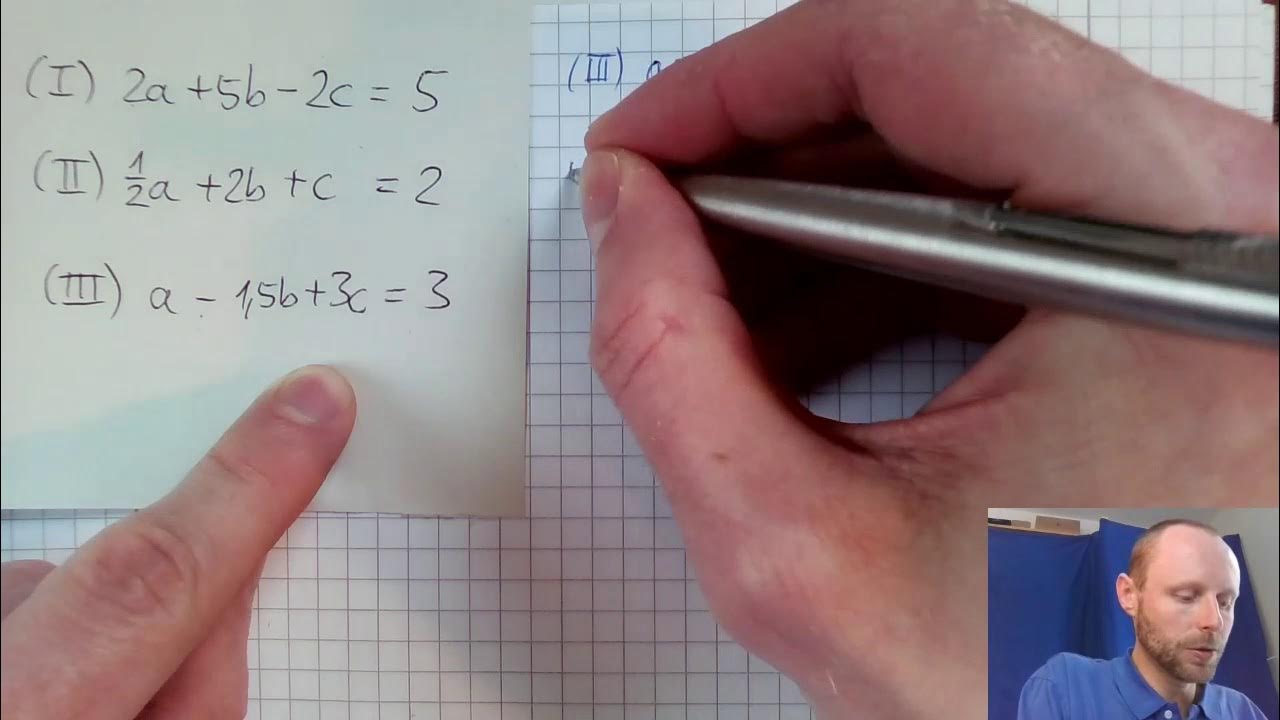 (I) 2a + 5b - 2c = 5
(II) 1/2 a + 2b + c = 2
(III) a - 1,5b + 3c = 3
(III) a